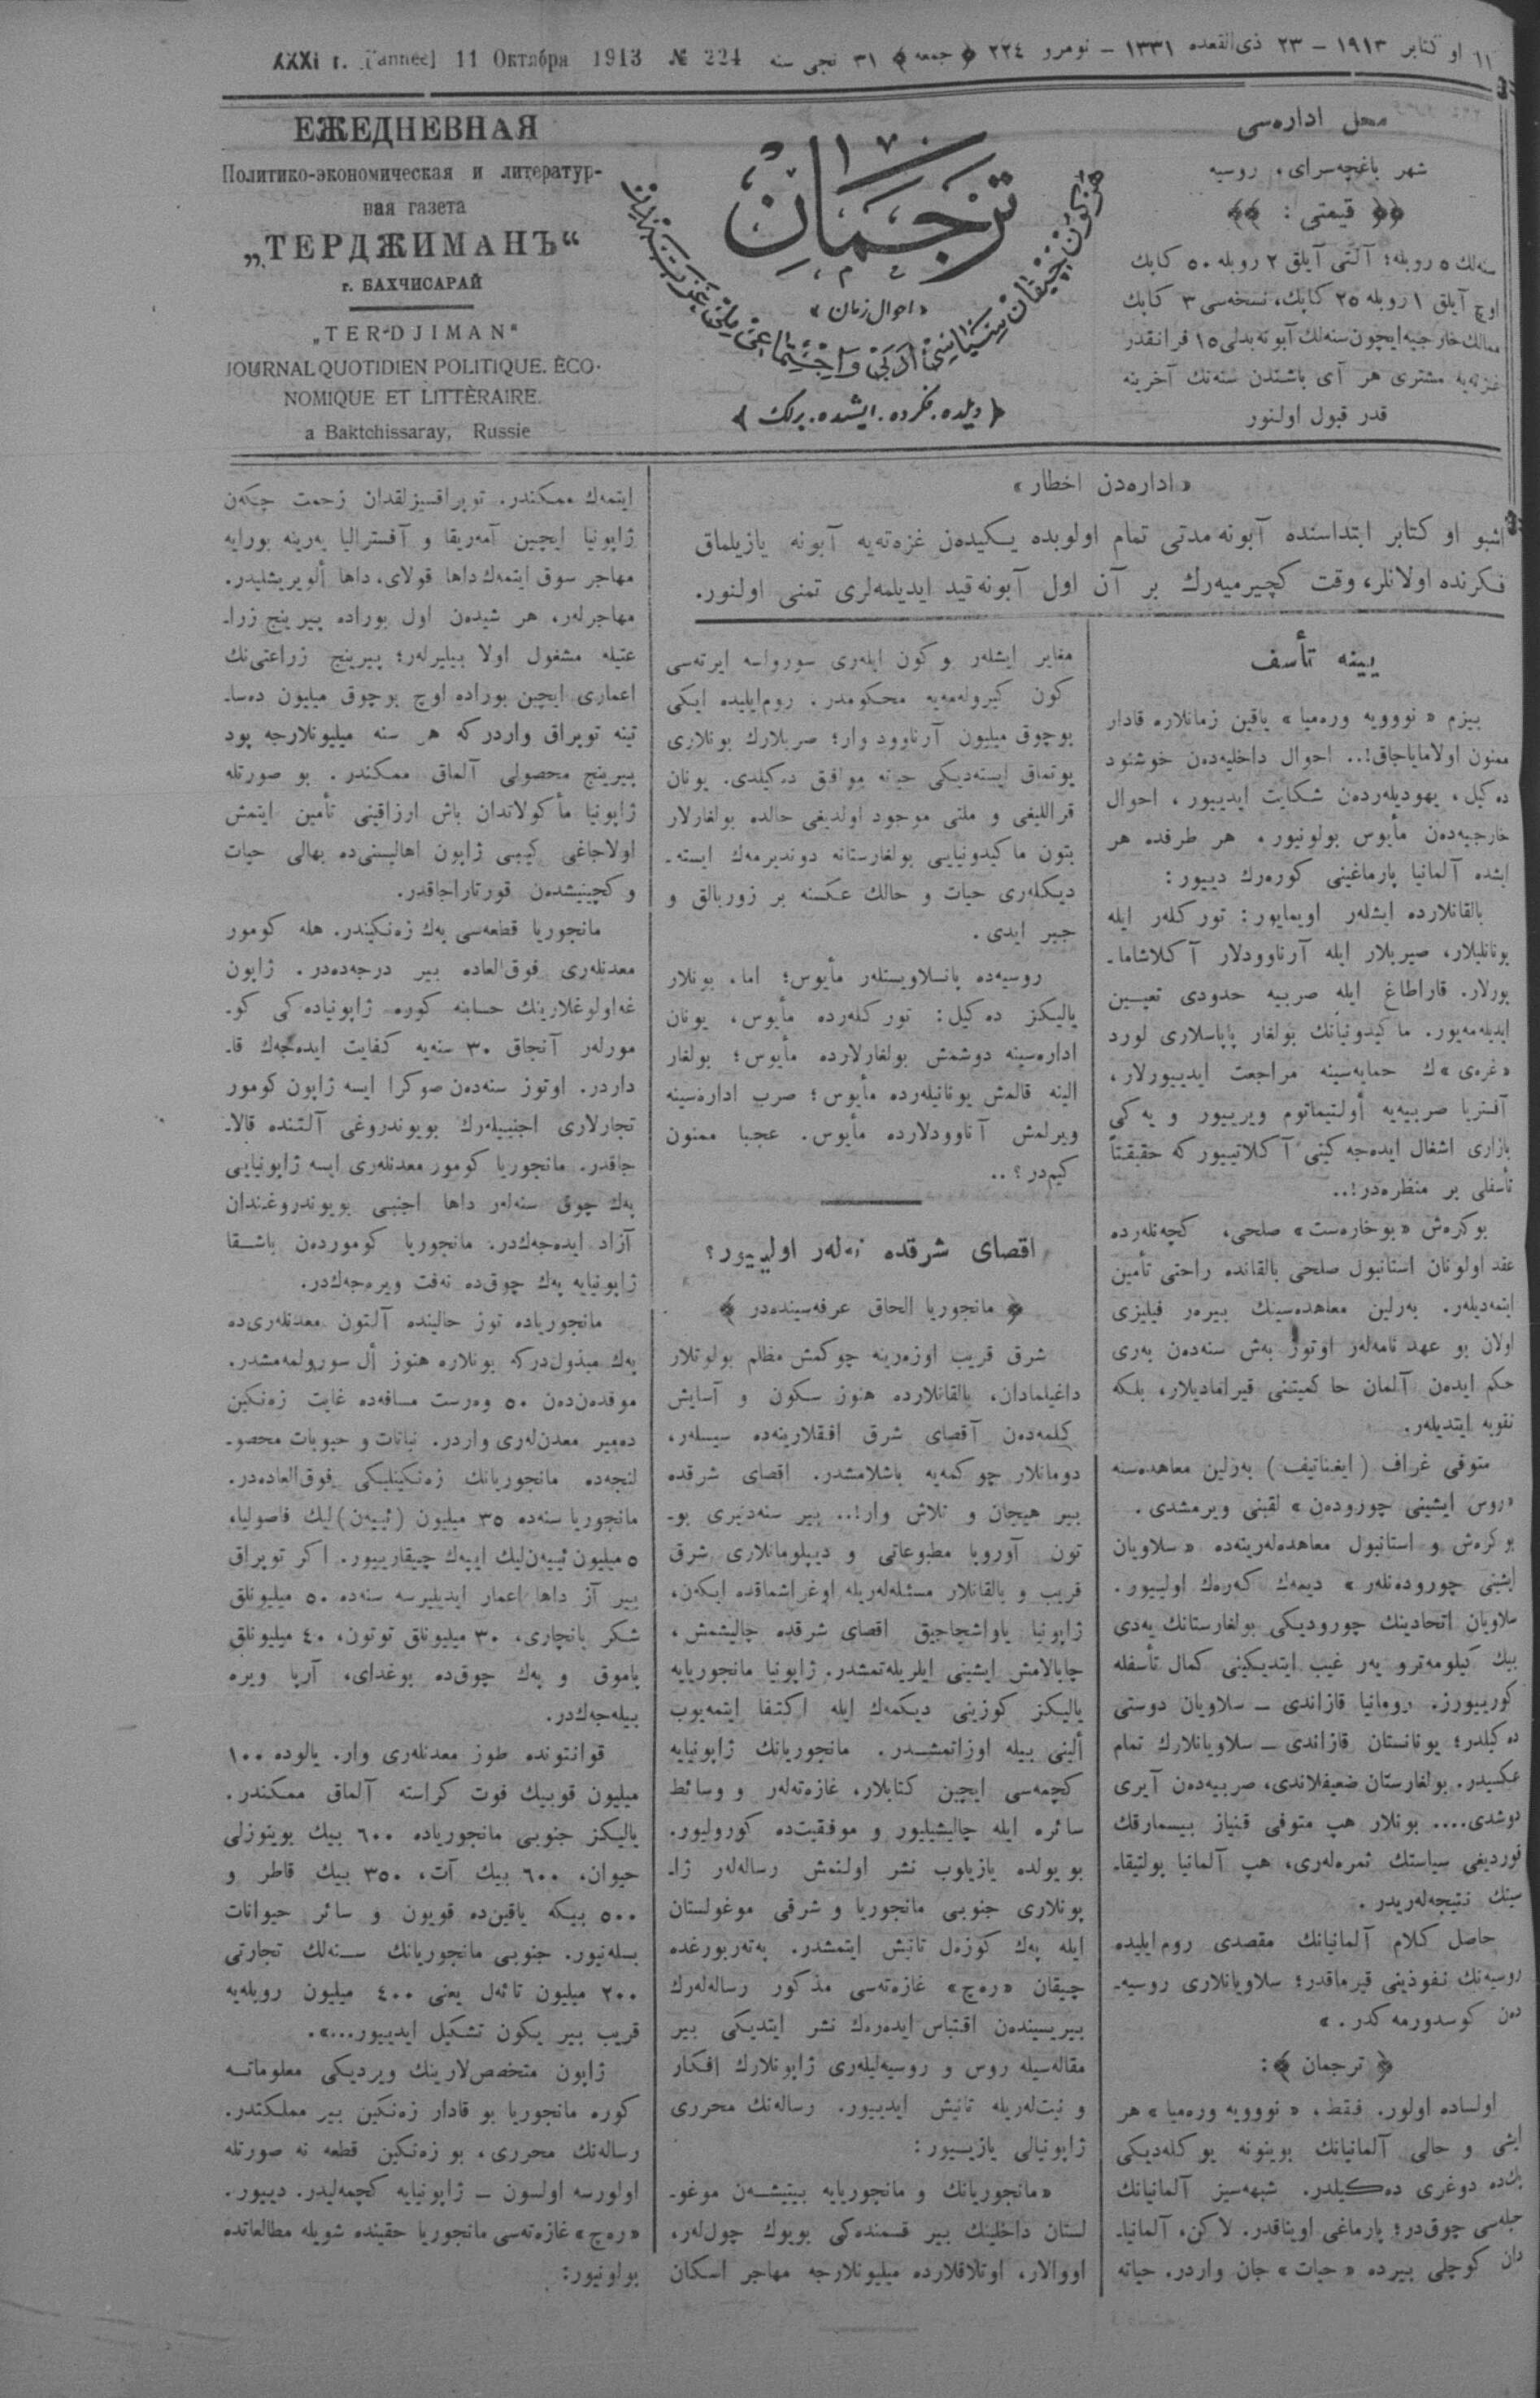 ١١ اوكتابر ١٩١٣ – ٢٣ ذی‌القعده ١٣٣١ – نومرو ٢٢٤ ﴿ جمعه ﴾ ٣١ نجی سنه
XXXI г. [l'année] 11 Октября 1913 № 224
محل اداره‌سی
شهر باغچه‌سرای، روسیه
﴿﴿ قیمتی : ﴾﴾
سنه‌لك ٥ روبله؛ آلتی آیلق ٢ روبله ٥٠ كاپك
اوچ آیلق ١ روبله ٢٥ كاپك، نسخه‌سی ٣ كاپك
ممالك خارجیه ایچون سنه‌لك آبونه بدلی ١٥ فرانقدر
غزته‌یه مشتری هر آی باشندن سنه‌نك آخرینه
قدر قبول اولنور
ترجمان
١٨٨٣
«احوال زمان»
هر كون چیقان سیاسی، ادبی و اجتماعی ملی غزته‌در
﴿ دیلده. فكرده. ایشده. برلك ﴾
ЕЖЕДНЕВНАЯ
Политико-экономическая и литератур-
ная газета
„ТЕРДЖИМАНЪ“
г. БАХЧИСАРАЙ
„TERDJIMAN“
JOURNAL QUOTIDIEN POLITIQUE. ÈCO-
NOMIQUE ET LITTÈRAIRE.
a Baktchissaray, Russie
«اداره‌دن اخطار»
اشبو اوكتابر ابتداسنده آبونه مدتی تمام اولوبده یكیدەن غزەتەیە آبونه یازیلماق
فكرنده اولانلر، وقت كچیرمیەرك بر آن اول آبونه قید ایدیلمەلری تمنی اولنور.
یینه تأسف
بیزم «نوویه ورەمیا» یاقین زمانلاره قادار
ممنون اولامایاجاق!.. احوال داخلیەدەن خوشنود
دەكیل، یهودیلەردەن شكایت ایدییور، احوال
خارجیەدەن مأیوس بولونیور. هر طرفده هر
ایشده آلمانیا پارماغینی كورەرك دییور:
بالقانلارده ایشلەر اویمایور: توركلەر ایله
یونانلیلار، صیربلار ایله آرناوودلار آكلاشاما-
یورلار. قاراطاغ ایله صربیه حدودی تعیین
ایدیلەمەیور. ماكیدونیانك بولغار پاپاسلاری لورد
«غرەی»ك حمایەسینه مراجعت ایدییورلار،
آفستریا صربیەیه أولتیماتوم ویرییور و یەكی
بازاری اشغال ایدەجەكینی آكلاتییور كه حقیقتاً
تأسفلی بر منظرەدر!..
بوكرەش «بوخارەست» صلحی، كچەنلەرده
عقد اولونان استانبول صلحی بالقانده راحتی تأمین
ایتمەدیلەر. بەرلین معاهدەسینك بیرەر فیلیزی
اولان بو عهد نامەلەر اوتوز بەش سنەدەن بەری
حكم ایدەن آلمان حاكمیتنی قیرامادیلار، بلكه
تقویه ایتدیلەر.
متوفی غراف (ایغناتیف) بەرلین معاهدەسنه
«روس ایشینی چورودەن» لقبنی ویرمشدی.
بوكرەش و استانبول معاهدەلەرینەده «سلاویان
ایشینی چورودەنلەر» دیمەك كەرەك اولییور.
سلاویان اتحادینك چورودیكی بولغارستانك یەدی
بیك كیلومەترو یەر غیب ایتدیكینی كمال تأسفله
كورییورز. رومانیا قازاندی — سلاویان دوستی
دەكیلدر؛ یونانستان قازاندی — سلاویانلارك تمام
عكسیدر. بولغارستان ضعیفلاندی، صربیەدەن آیری
دوشدی.... بونلار هپ متوفی قنیاز بیسمارقك
قوردیغی سیاستك ثمرەلەری، هپ آلمانیا پولتیقا-
سینك نتیجەلەریدر.
حاصل كلام آلمانیانك مقصدی روم‌ایلیده
روسیەنك نفوذینی قیرماقدر؛ سلاویانلاری روسیه-
دەن كوسدورمەكدر.»
﴿ ترجمان ﴾:
اولساده اولور. فقط، «نوویه ورەمیا» هر
ایشی و حالی آلمانیانك بوینونه یوكلەدیكی
پكده دوغری دەكیلدر. شبهەسیز آلمانیانك
حیلەسی چوق‌در؛ پارماغی اویناقدر. لاكن، آلمانیا-
دان كوچلی بیرده «حیات» جان واردر. حیاته
مغایر ایشلەر و كون ایلەری سورولسه ایرتەسی
كون كیرولەمەیه محكومدر. روم‌ایلیده ایكی
بوچوق میلیون آرناوود وار؛ صربلارك بونلاری
یوتماق ایستەدیكی حیاته موافق دەكیلدی. یونان
قراللیغی و ملتی موجود اولدیغی حالده بولغارلار
بتون ماكیدونیایی بولغارستانه دوندیرمەك ایسته-
دیكلەری حیات و حالك عكسنه بر زوربالق و
جبر ایدی.
روسیەده پانسلاویستلەر مأیوس؛ اما، بونلار
یالیكز دەكیل: توركلەرده مأیوس، یونان
ادارەسینه دوشمش بولغارلارده مأیوس؛ بولغار
الینه قالمش یونانیلەرده مأیوس؛ صرب ادارەسینه
ویرلمش آناوودلارده مأیوس. عجبا ممنون
كیم‌در؟..
اقصای شرقده نەلەر اولییور؟
﴿ مانجوریا الحاق عرفەسیندەدر ﴾
شرق قریب اوزەرینه چوكمش مظلم بولوتلار
داغیلمادان، بالقانلارده هنوز سكون و آسایش
كلمەدەن آقصای شرق افقلارینەده سیسلەر،
دومانلار چوكمەیه باشلامشدر. اقصای شرقده
بیر هیجان و تلاش وار!.. بیر سنەدنبری بو-
تون آوروپا مطبوعاتی و دیپلوماتلاری شرق
قریب و بالقانلار مسئلەلەریله اوغراشماقده ایكەن،
ژاپونیا یاواشجاجیق اقصای شرقده چالیشمش،
چابالامش ایشینی ایلریلەتمشدر. ژاپونیا مانجوریایه
یالیكز كوزینی دیكمەك ایله اكتفا ایتمەیوب
ألینی بیله اوزاتمشدر. مانجوریانك ژاپونیایه
كچمەسی ایچین كتابلار، غازەتەلەر و وسائط
سائره ایله چالیشیلیور و موفقیت‌ده كورولیور.
بو یولده یازیلوب نشر اولنمش رسالەلەر ژا-
پونلاری جنوبی مانجوریا و شرقی موغولستان
ایله پەك كوزەل تانیش ایتمشدر. پەتەربورغده
چیقان «رەچ» غازەتەسی مذكور رسالەلەرك
بیریسیندەن اقتباس ایدەرەك نشر ایتدیكی بیر
مقالەسیله روس و روسیەلیلەری ژاپونلارك افكار
و نیت‌لەریله تانیش ایدییور. رسالەنك محرری
ژاپونیالی یازیییور:
«مانجوریانك و مانجوریایه بیتیشەن موغو-
لستان داخلینك بیر قسمندەكی بویوك چول‌لەر،
اووالار، اوتلاقلارده میلیونلارجه مهاجر اسكان
ایتمەك ممكندر. توپراقسیزلقدان زحمت چكەن
ژاپونیا ایچین آمەریقا و آفسترالیا یەرینه بورایه
مهاجر سوق ایتمەك داها قولای، داها ألویریشلیدر.
مهاجرلەر، هر شیدەن اول بوراده پیرینج زرا-
عتیله مشغول اولا بیلیرلەر؛ پیرینج زراعتی‌نك
اعماری ایچین بوراده اوچ بوچوق میلیون دەسا-
تینه توپراق واردر كه هر سنه میلیونلارجه پود
پیرینج محصولی آلماق ممكندر. بو صورتله
ژاپونیا مأكولاتدان باش ارزاقینی تأمین ایتمش
اولاجاغی كیبی ژاپون اهالیسنی‌ده بهالی حیات
و كچینیشدەن قورتاراجاقدر.
مانجوریا قطعەسی پەك زەنكیندر. هله كومور
معدنلەری فوق‌العاده بیر درجەدەدر. ژاپون
غەاولوغلارینك حسابنه كوره ژاپونیادەكی كو-
مورلەر آنجاق ٣٠ سنەیه كفایت ایدەجەك قا-
داردر. اوتوز سنەدەن صوكرا ایسه ژاپون كومور
تجارلاری اجنبیلەرك بویوندروغی آلتنده قالا-
جاقدر. مانجوریا كومور معدنلەری ایسه ژاپونیایی
پەك چوق سنەلەر داها اجنبی بویوندروغندان
آزاد ایدەجەك‌در. مانجوریا كوموردەن باشقا
ژاپونیایه پەك چوق‌ده نەفت ویرەجەك‌در.
مانجوریاده توز حالینده آلتون معدنلەری‌ده
پەك مبذول‌در كه بونلاره هنوز أل سورولمەمشدر.
موقدەن‌دەن ٥٠ وەرست مسافەده غایت زەنكین
دەمیر معدن‌لەری واردر. نباتات و حبوبات محصو-
لنجەده مانجوریانك زەنكینلیكی فوق‌العادەدر.
مانجوریا سنەده ٣٥ میلیون (ئییەن)لیك فاصولیا،
٥ میلیون ئییەن‌لیك ایپەك چیقارییور. اكر توپراق
بیر آز داها اعمار ایدیلیرسه سنەده ٥٠ میلیونلق
شكر پانچاری، ٣٠ میلیونلق توتون، ٤٠ میلیونلق
پاموق و پەك چوق‌ده بوغدای، آرپا ویره
بیلەجەك‌در.
قوانتونده طوز معدنلەری وار. یالوده ١٠٠
میلیون قوبیك فوت كراسته آلماق ممكندر.
یالیكز جنوبی مانجوریاده ٦٠٠ بیك بوینوزلی
حیوان، ٦٠٠ بیك آت، ٣٥٠ بیك قاطر و
٥٠٠ بیكه یاقین‌ده قویون و سائر حیوانات
بسلەنیور. جنوبی مانجوریانك سنەلك تجارتی
٢٠٠ میلیون تائەل یعنی ٤٠٠ میلیون روبلەیه
قریب بیر یكون تشكیل ایدییور...».
ژاپون متخصص‌لارینك ویردیكی معلوماته
كوره مانجوریا بو قادار زەنكین بیر مملكتدر.
رسالەنك محرری، بو زەنكین قطعه نه صورتله
اولورسه اولسون — ژاپونیایه كچمەلیدر. دییور.
«رەچ» غازەتەسی مانجوریا حقینده شویله مطالعاتده
بولونیور: